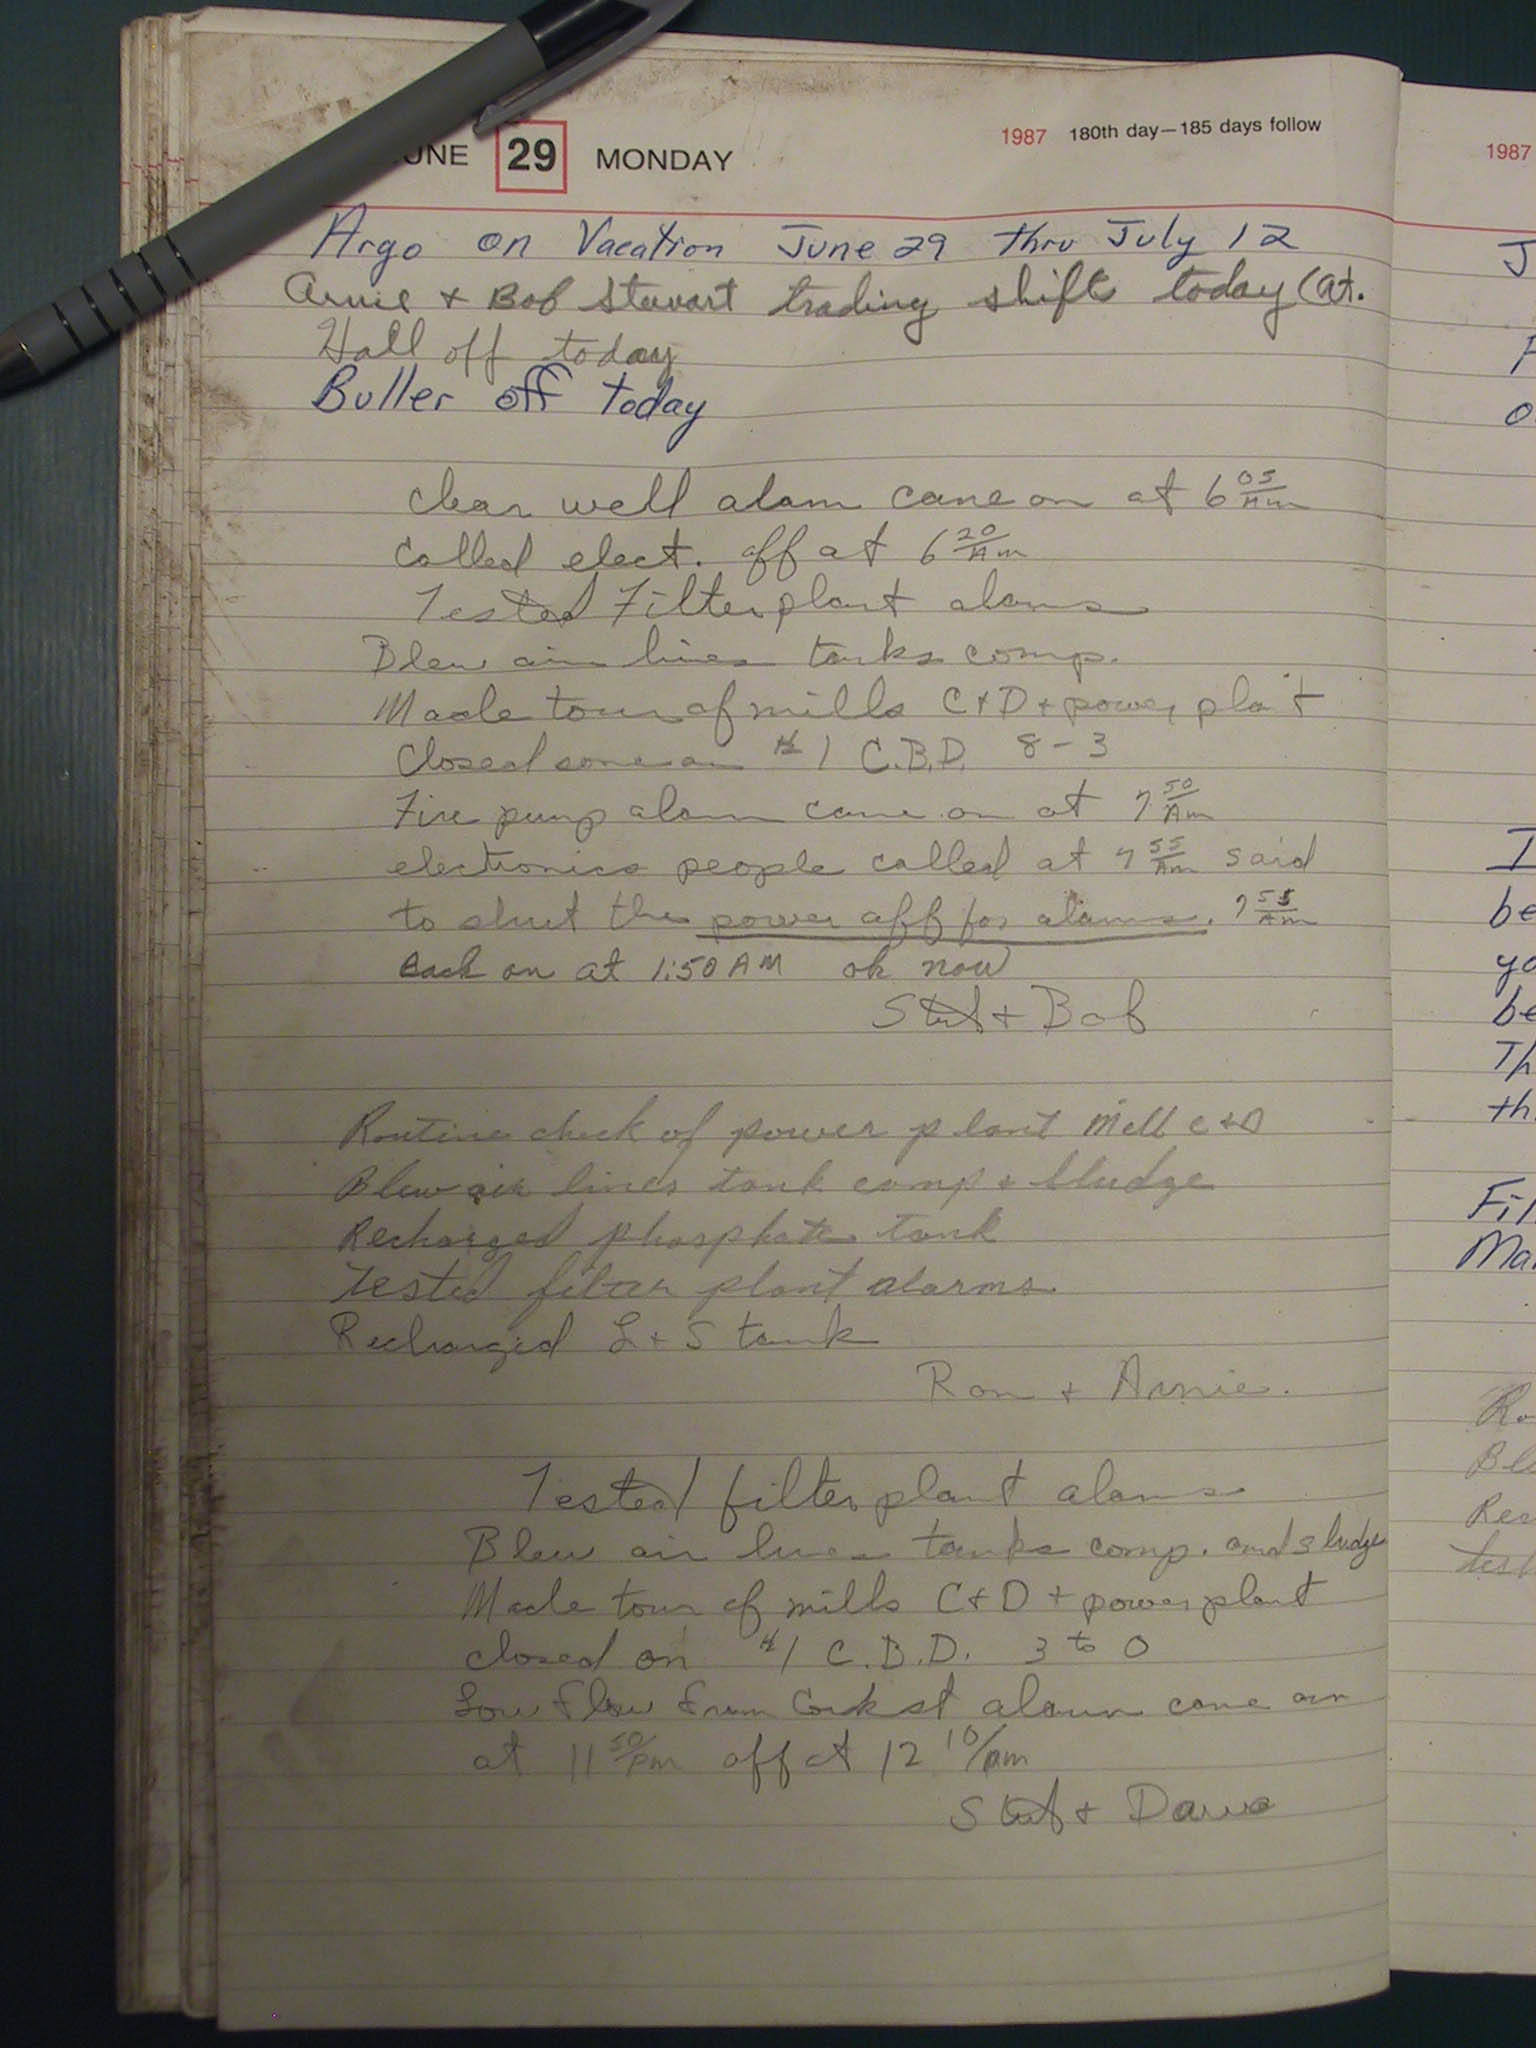 UNE 29 MONDAY 1987 180th day—185 days follow
Argo on Vacation June 29 thru July 12
Arnie + Bob Stewart trading shift today (at.
Hall off today
Buller off today
Clear well alarm came on at 6 05/Am
Called elect. off at 6 20/Am
Tested Filter plant alarms
Blew air lines tanks comp.
Made tour of mills C+D + power plant
Closed some on #1 C.B.D. 8-3
Fire pump alarm came on at 7 50/Am
electronics people called at 7 55/Am said
to shut the power off for alarms. 7 55/Am
Back on at 1:50 AM ok now
+ Bob
Routine check of power plant Mill C+D
Blew air lines tank comp + sludge
Recharged phosphate tank
Tested filter plant alarms
Recharged L+S tank
Ron + Arnie.
Tested filter plant alarms
Blew air lines tanks comp. and sludge
Made tour of mills C+D + power plant
closed on #1 C.B.D. 3 to 0
Low Flow from Cork st alarm came on
at 11 50/pm off at 12 10/am
+ Dave
1987
J
F
I
be
yo
be
Th
th
Fil
Ma
Ro
Ble
Rec
test